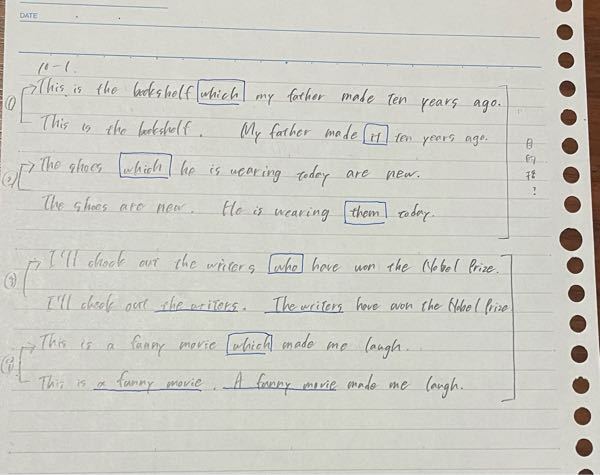 DATE
10-1.
① This is the bookshelf which my father made ten years ago.
This is the bookshelf. My father made it ten years ago.
② The shoes which he is wearing today are new.
The shoes are new. He is wearing them today.
目的語?
③ I'll check out the writers who have won the Nobel Prize.
I'll check out the writers. The writers have won the Nobel Prize
④ This is a funny movie which made me laugh.
This is a funny movie. A funny movie made me laugh.